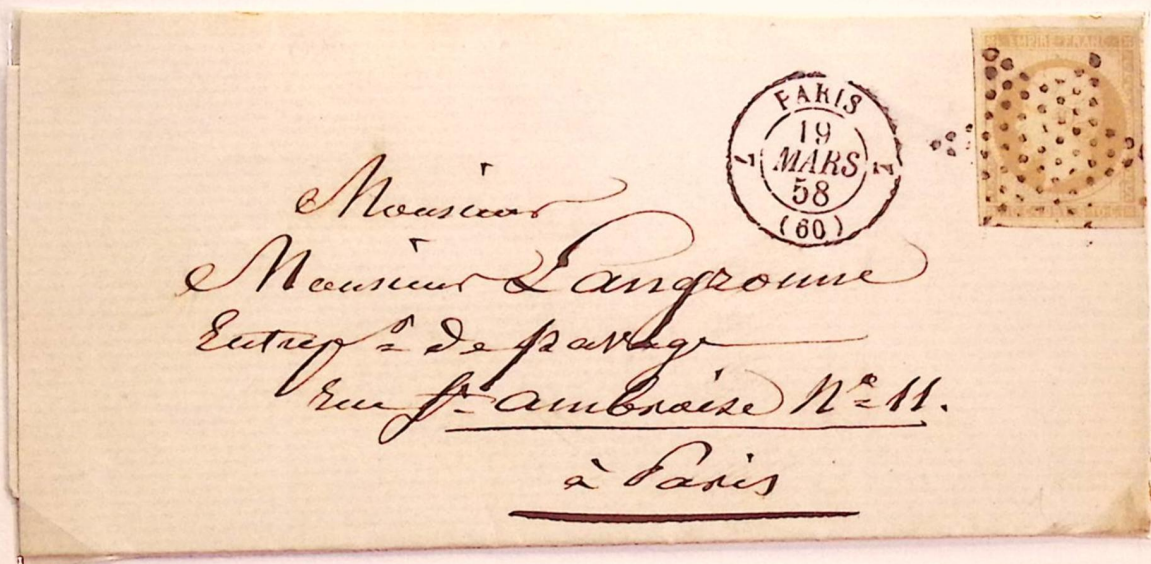 EMPIRE FRANC
PARIS
19
MARS
58
(60)
Monsieur
Monsieur Langronne
Entrepr de pavage
rue St ambroise No 11.
à Paris